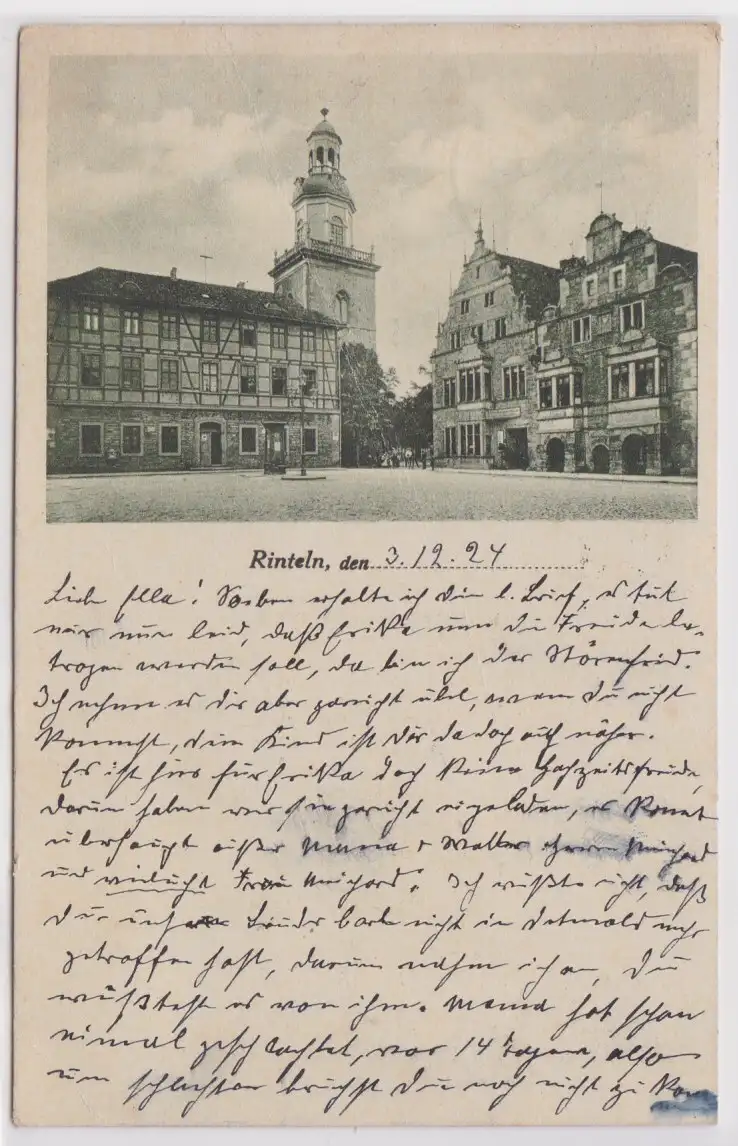 Rinteln, den 3.12.24
Liebe Ella! Soeben erhalte ich Dein l. Brief, es tut
mir nun leid, daß Erika um die Freude be-
trogen werden soll, da bin ich der Störenfried.
Ich nehme es dir aber gar nicht übel, wenn Du nicht
kommst, dein Kind ist dir da doch auch näher.
Es ist hier für Erika doch keine Hochzeitsfreude,
darum haben wir sie gar nicht eingeladen, es kommt
überhaupt außer Mama + Walter Herrn
und vielleicht Frau. Ich wußte nicht, daß
Du unsern Bruder nicht in Detmold mehr
getroffen hast, darum nahm ich an, Du
wüßtest es von ihm. Mama hat schon
einmal geschlachtet, vor 14 Tagen, also
um schlachten brauchst Du noch nicht zu kom